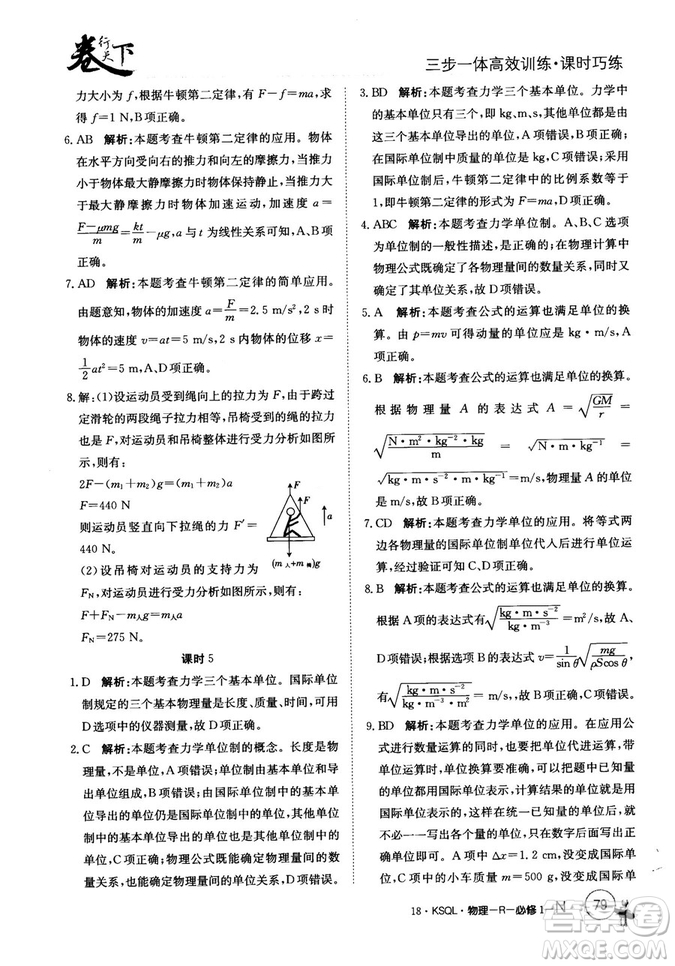 卷行天下
三步一体高效训练·课时巧练
力大小为 f,根据牛顿第二定律,有 F－f=ma,故
得:f=1 N,B项正确。
6. AB 解析:本题考查牛顿第二定律的应用。物体
在水平方向受向右的推力和向左的摩擦力,当推力
小于物体最大静摩擦力时物体保持静止,当推力大
于最大静摩擦力时物体做加速运动,加速度 a=
(F－μmg)/m=kt/m－μg,a 与 t 为线性关系可知,A、B项
正确。
7. AD 解析:本题考查牛顿第二定律的简单应用。
由题意知,物体的加速度 a=F/m=2.5 m/s²,2 s时
物体的速度 v=at=5 m/s,2 s内物体的位移 x=
1/2 at²=5 m,A、D项正确。
8. 解:(1)设运动员受到绳向上的拉力为 F,由于跨过
定滑轮的两段绳子拉力相等,吊椅受到绳的拉力也
是 F。对运动员和吊椅整体进行受力分析如图所
示,则有:
2F－(m₁+m₂)g=(m₁+m₂)a
F=440 N
则运动员竖直向下拉绳的力 F′=
440 N。
F F a
(m人+m椅)g
(2)设吊椅对运动员的支持力为
FN,对运动员进行受力分析则有:
F+FN－m人g=m人a
FN=275 N。
课时 5
1. D 解析:本题考查力学单位制。国际单位
制规定的三个基本物理量是长度、质量、时间,可用
D选项中的仪器测量,故D项正确。
2. C 解析:本题考查力学单位制的概念。长度是物
理量,不是单位,A项错误;国际单位制由基本单位
和导出单位组成,基本单位是根据物理量运算中的
实际需要而选定的少数几个物理量单位,由基本单
位导出的单位仍是国际单位制中的导出单位,B、D
项错误;物理公式既能确定物理量间的数量关系,
又能确定物理量间的单位关系,C项正确。
3. BD 解析:本题考查力学三个基本单位。力学中
的基本单位只有 kg、m、s,其他力学单位都是由
这三个基本单位导出的单位,A项错误;在国际
单位制中质量的单位是 kg,C项错误;采用
国际单位制后,牛顿第二定律中的比例系数等于
1,即牛顿第二定律的形式为 F=ma,D项正确。
4. ABC 解析:本题考查力学单位制。A、B、C选项
为单位制的一般性描述,均正确;在物理计算中
物理公式完成了物理量间的数量关系和单位关系
的换算,D项错误。
5. A 解析:本题考查公式的运算也满足单位的换
算。由 p=mv 可得动量的单位,A项正确。
6. B 解析:本题考查公式的运算也满足单位的换算。
根据物理量 A 的表达式 A=√(GM/r)=
√(N·m²·kg⁻²·kg/m)=√(N·m·kg⁻¹)=
√(kg·m·s⁻²·m·kg⁻¹)=m/s,可知物理量 A 的单位
是 m/s,故B项正确。
7. CD 解析:本题考查力学单位的应用。将等式两
边各物理量的国际单位制单位代入后进行单位运
算,经过验证可知C、D项正确。
8. B 解析:本题考查公式的运算也满足单位的换算。
根据A项的表达式有√(kg·m·s⁻²/kg·m⁻³)=m²/s,故A、C、
D项错误;根据B项表达式 v=1/sin θ √(mg/ρScos θ),
有√(kg·m·s⁻²/kg·m⁻³·m²)=m/s,B项正确。
9. BD 解析:本题考查力学单位的应用。在应用公
式进行数量运算的同时也要把单位代进运算,带单
位运算时,单位换算要准确。可以把题中已知量的
单位都用国际单位表示,计算结果的单位就是用国
际单位表示的,这样在统一已知量的单位后,就
不必一一写出各个量的单位,只在数字后面写出
正确单位。A项中 Δx=1.2 cm,没变成国际单
位,C项错误;D项中 m=500 g,没变成国际单
18·KSQL·物理－R－必修1－N
79
答案圈
MXQE.COM